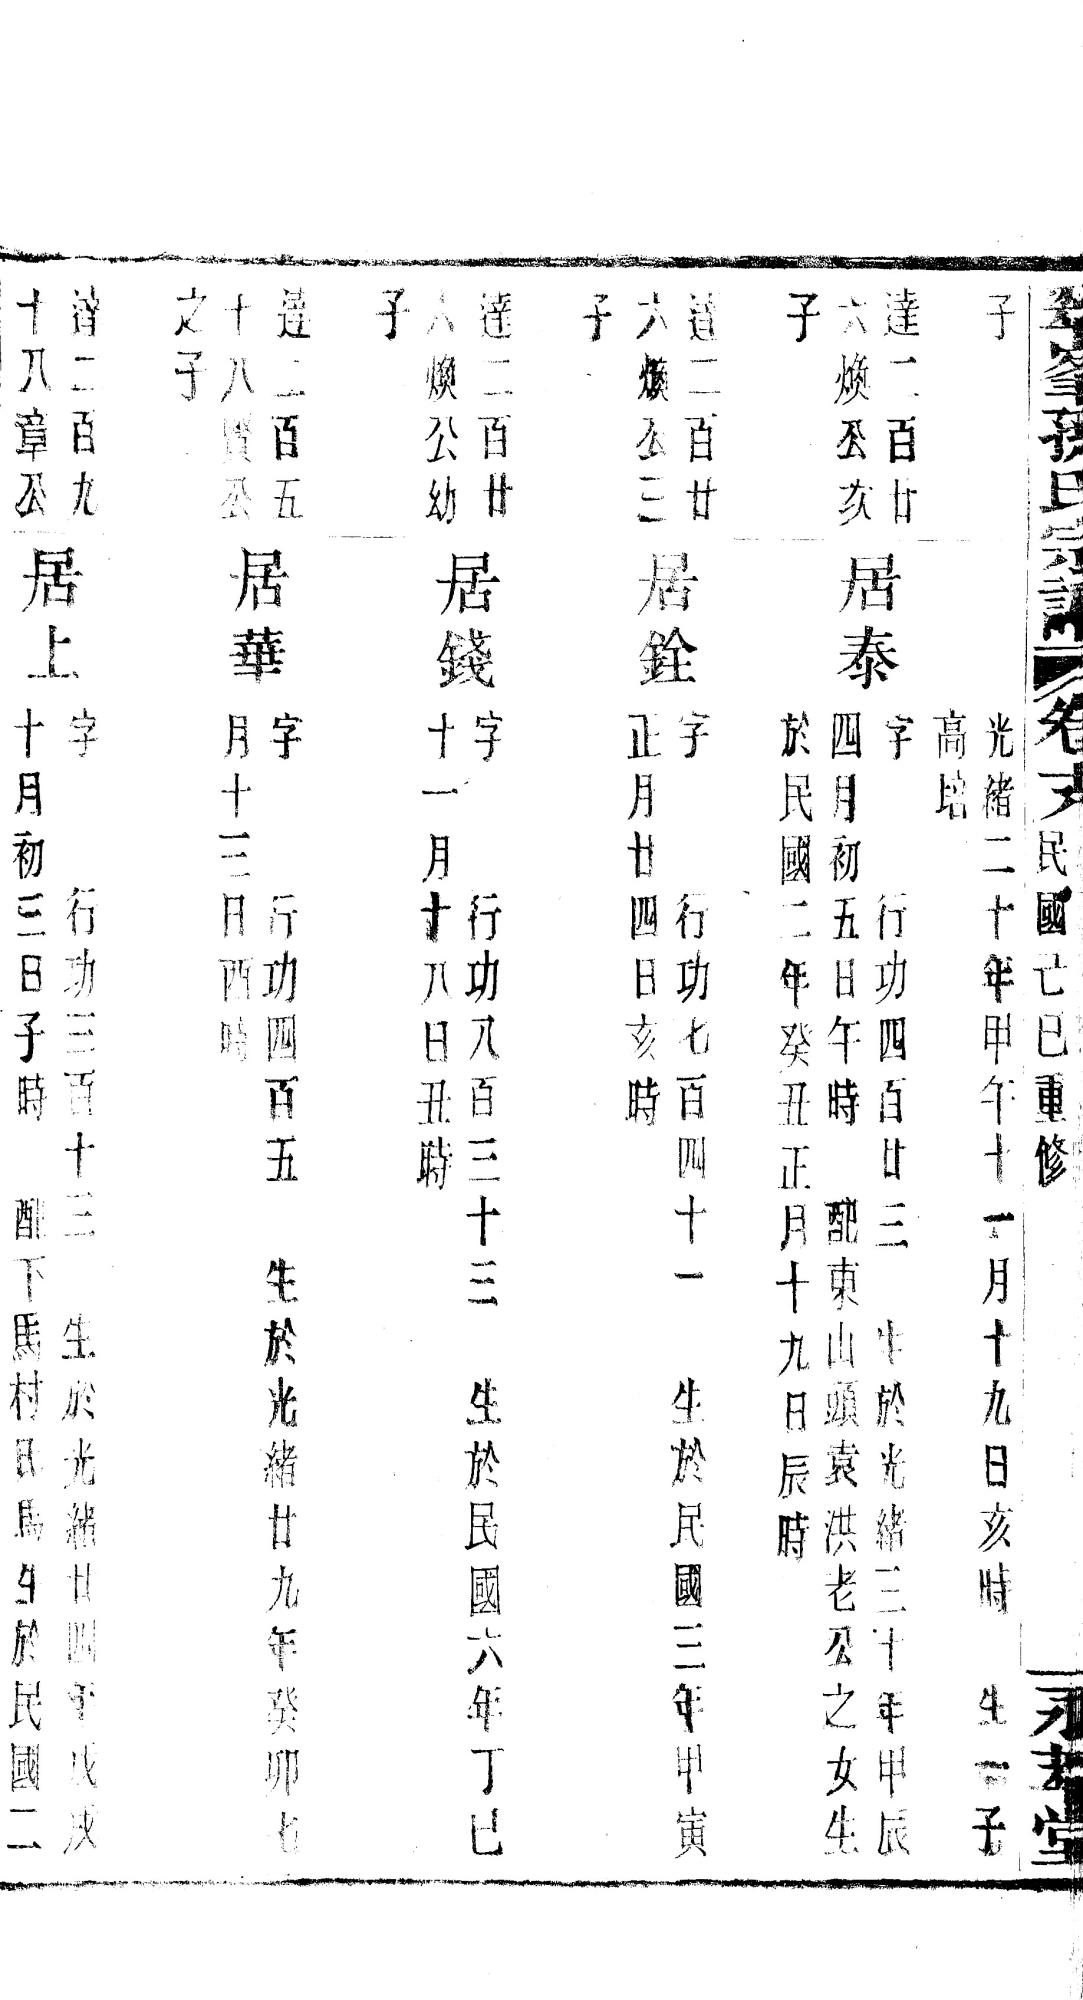 孫氏宗譜 卷 民國己巳重修 堂
子
光緒二十年甲午十一月十九日亥時 生一子
高培
達二百廿
六煥公亥
子
居泰
字 行功四百廿三 生於光緒三十年甲辰
四月初五日午時 配東山頭袁洪老公之女生
於民國二年癸丑正月十九日辰時
達二百廿
六煥公三
子
居銓
字 行功七百四十一 生於民國三年甲寅
正月廿四日亥時
達二百廿
六煥公幼
子
居錢
字 行功八百三十三 生於民國六年丁巳
十一月十八日丑時
達二百五
十八賢公
之子
居華
字 行功四百五 生於光緒廿九年癸卯七
月十三日酉時
達二百九
十八章公
居上
字 行功三百十三 生於光緒廿四年戊戌
十月初三日子時 配下馬村氏馬生於民國二